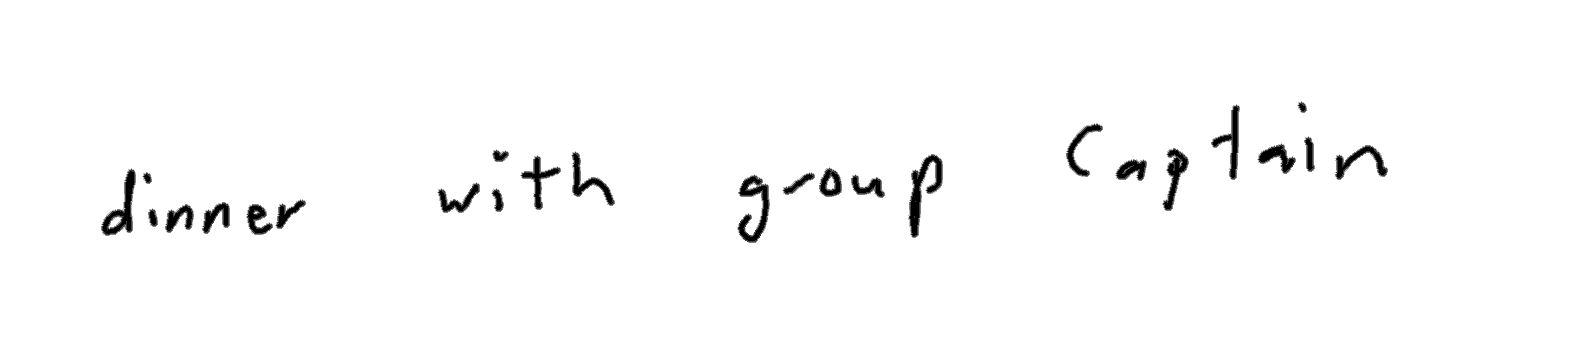 dinner with group captain